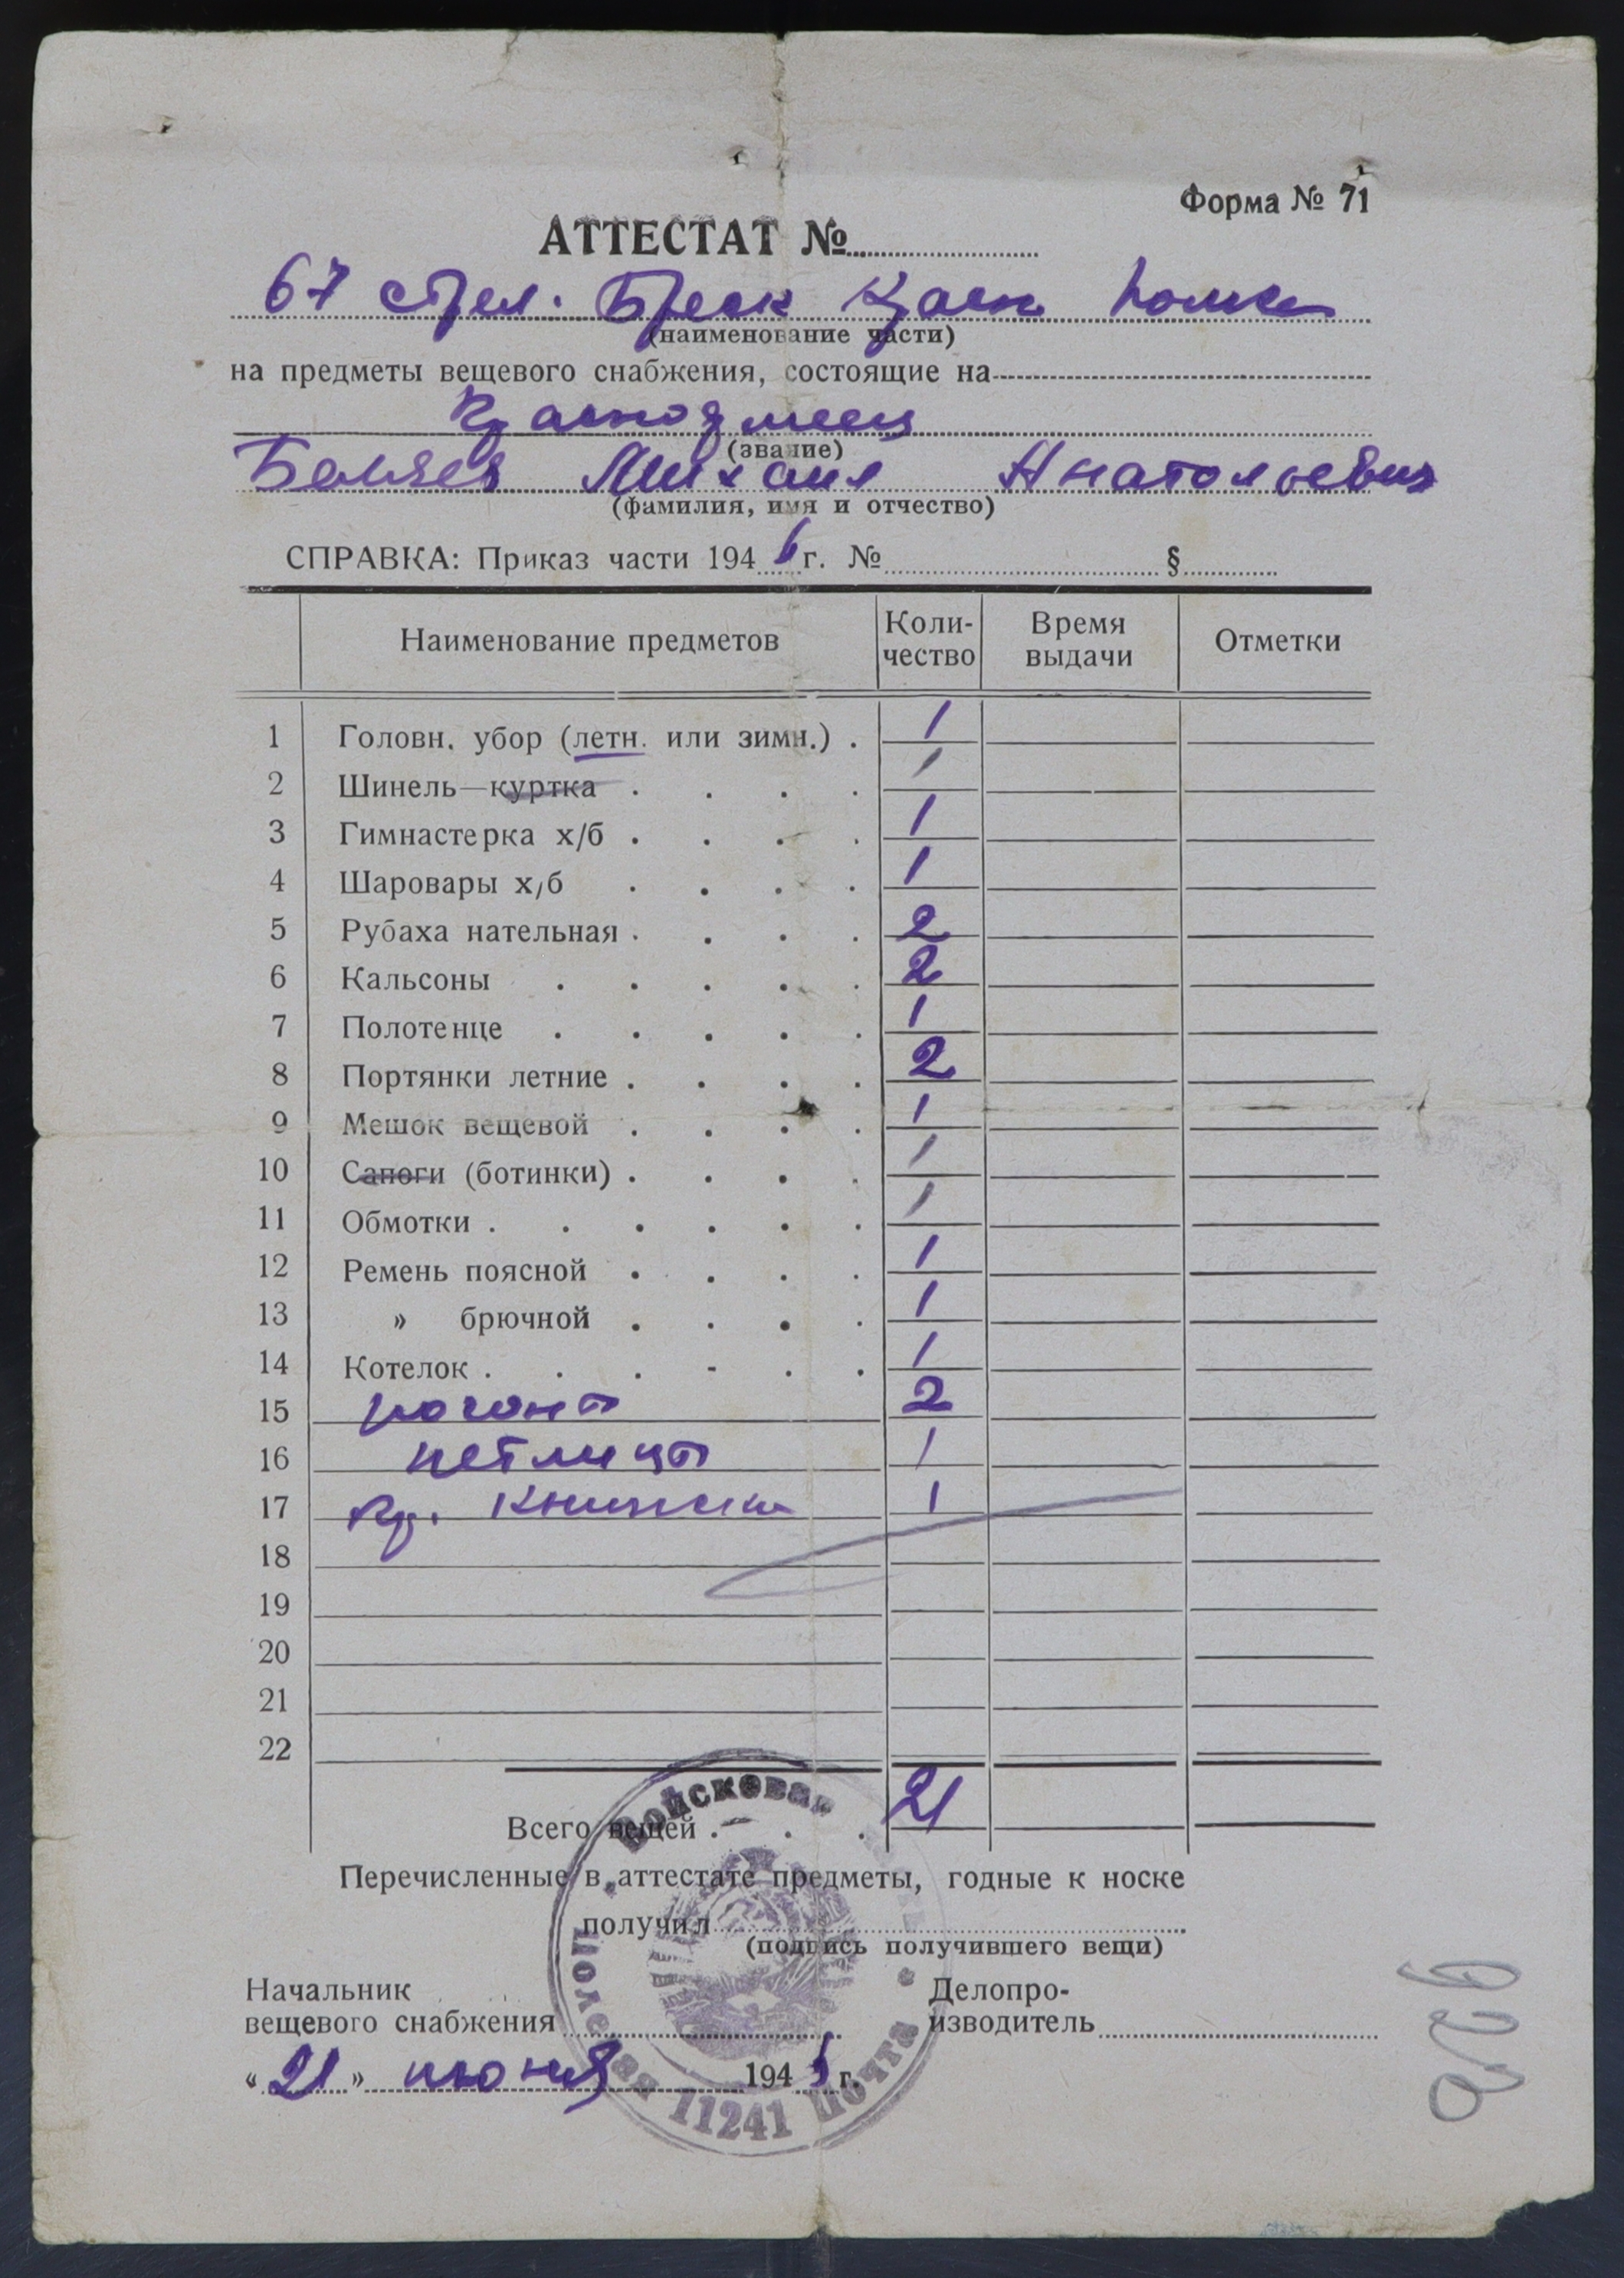 Форма № 71
АТТЕСТАТ №
67 стрел. Бреск Красн полка
(наименование части)
на предметы вещевого снабжения, состоящие на
Красноармеец
(звание)
Беляев Михаил Анатольевич
(фамилия, имя и отчество)
СПРАВКА: Приказ части 194 г. № §
Наименование предметов Коли-чество Время выдачи Отметки
1 Головн. убор (летн. или зимн.) 1
2 Шинель—куртка 1
3 Гимнастерка х/б 1
4 Шаровары х/б 1
5 Рубаха нательная 2
6 Кальсоны 2
7 Полотенце 1
8 Портянки летние 2
9 Мешок вещевой 1
10 Сапоги (ботинки) 1
11 Обмотки 1
12 Ремень поясной 1
13 » брючной 1
14 Котелок 1
15 погоны 2
16 петлицы 1
17 кр. книжка 1
18
19
20
21
22
Всего вещей 21
Перечисленные в аттестате предметы, годные к носке
получил
(подпись получившего вещи)
Начальник
вещевого снабжения
Делопро-
изводитель
« 21 » июня 194 г.
Войсковая
Полевая 11241 Почта